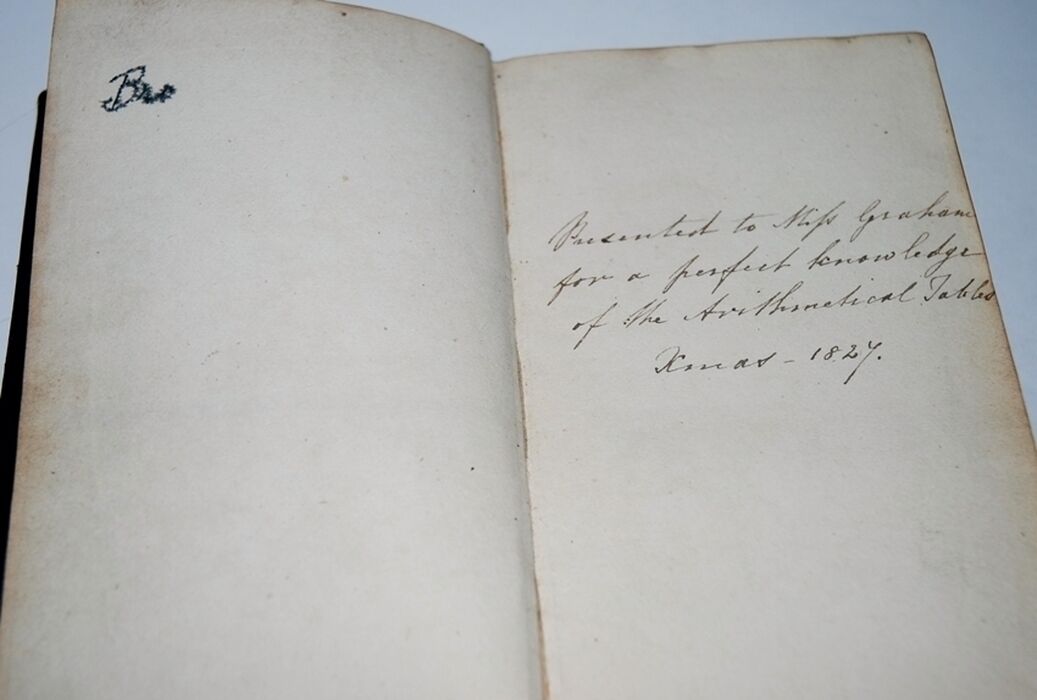 Br
Presented to Miſs Graham
for a perfect knowledge
of the Arithmetical Tables
Xmas - 1827.